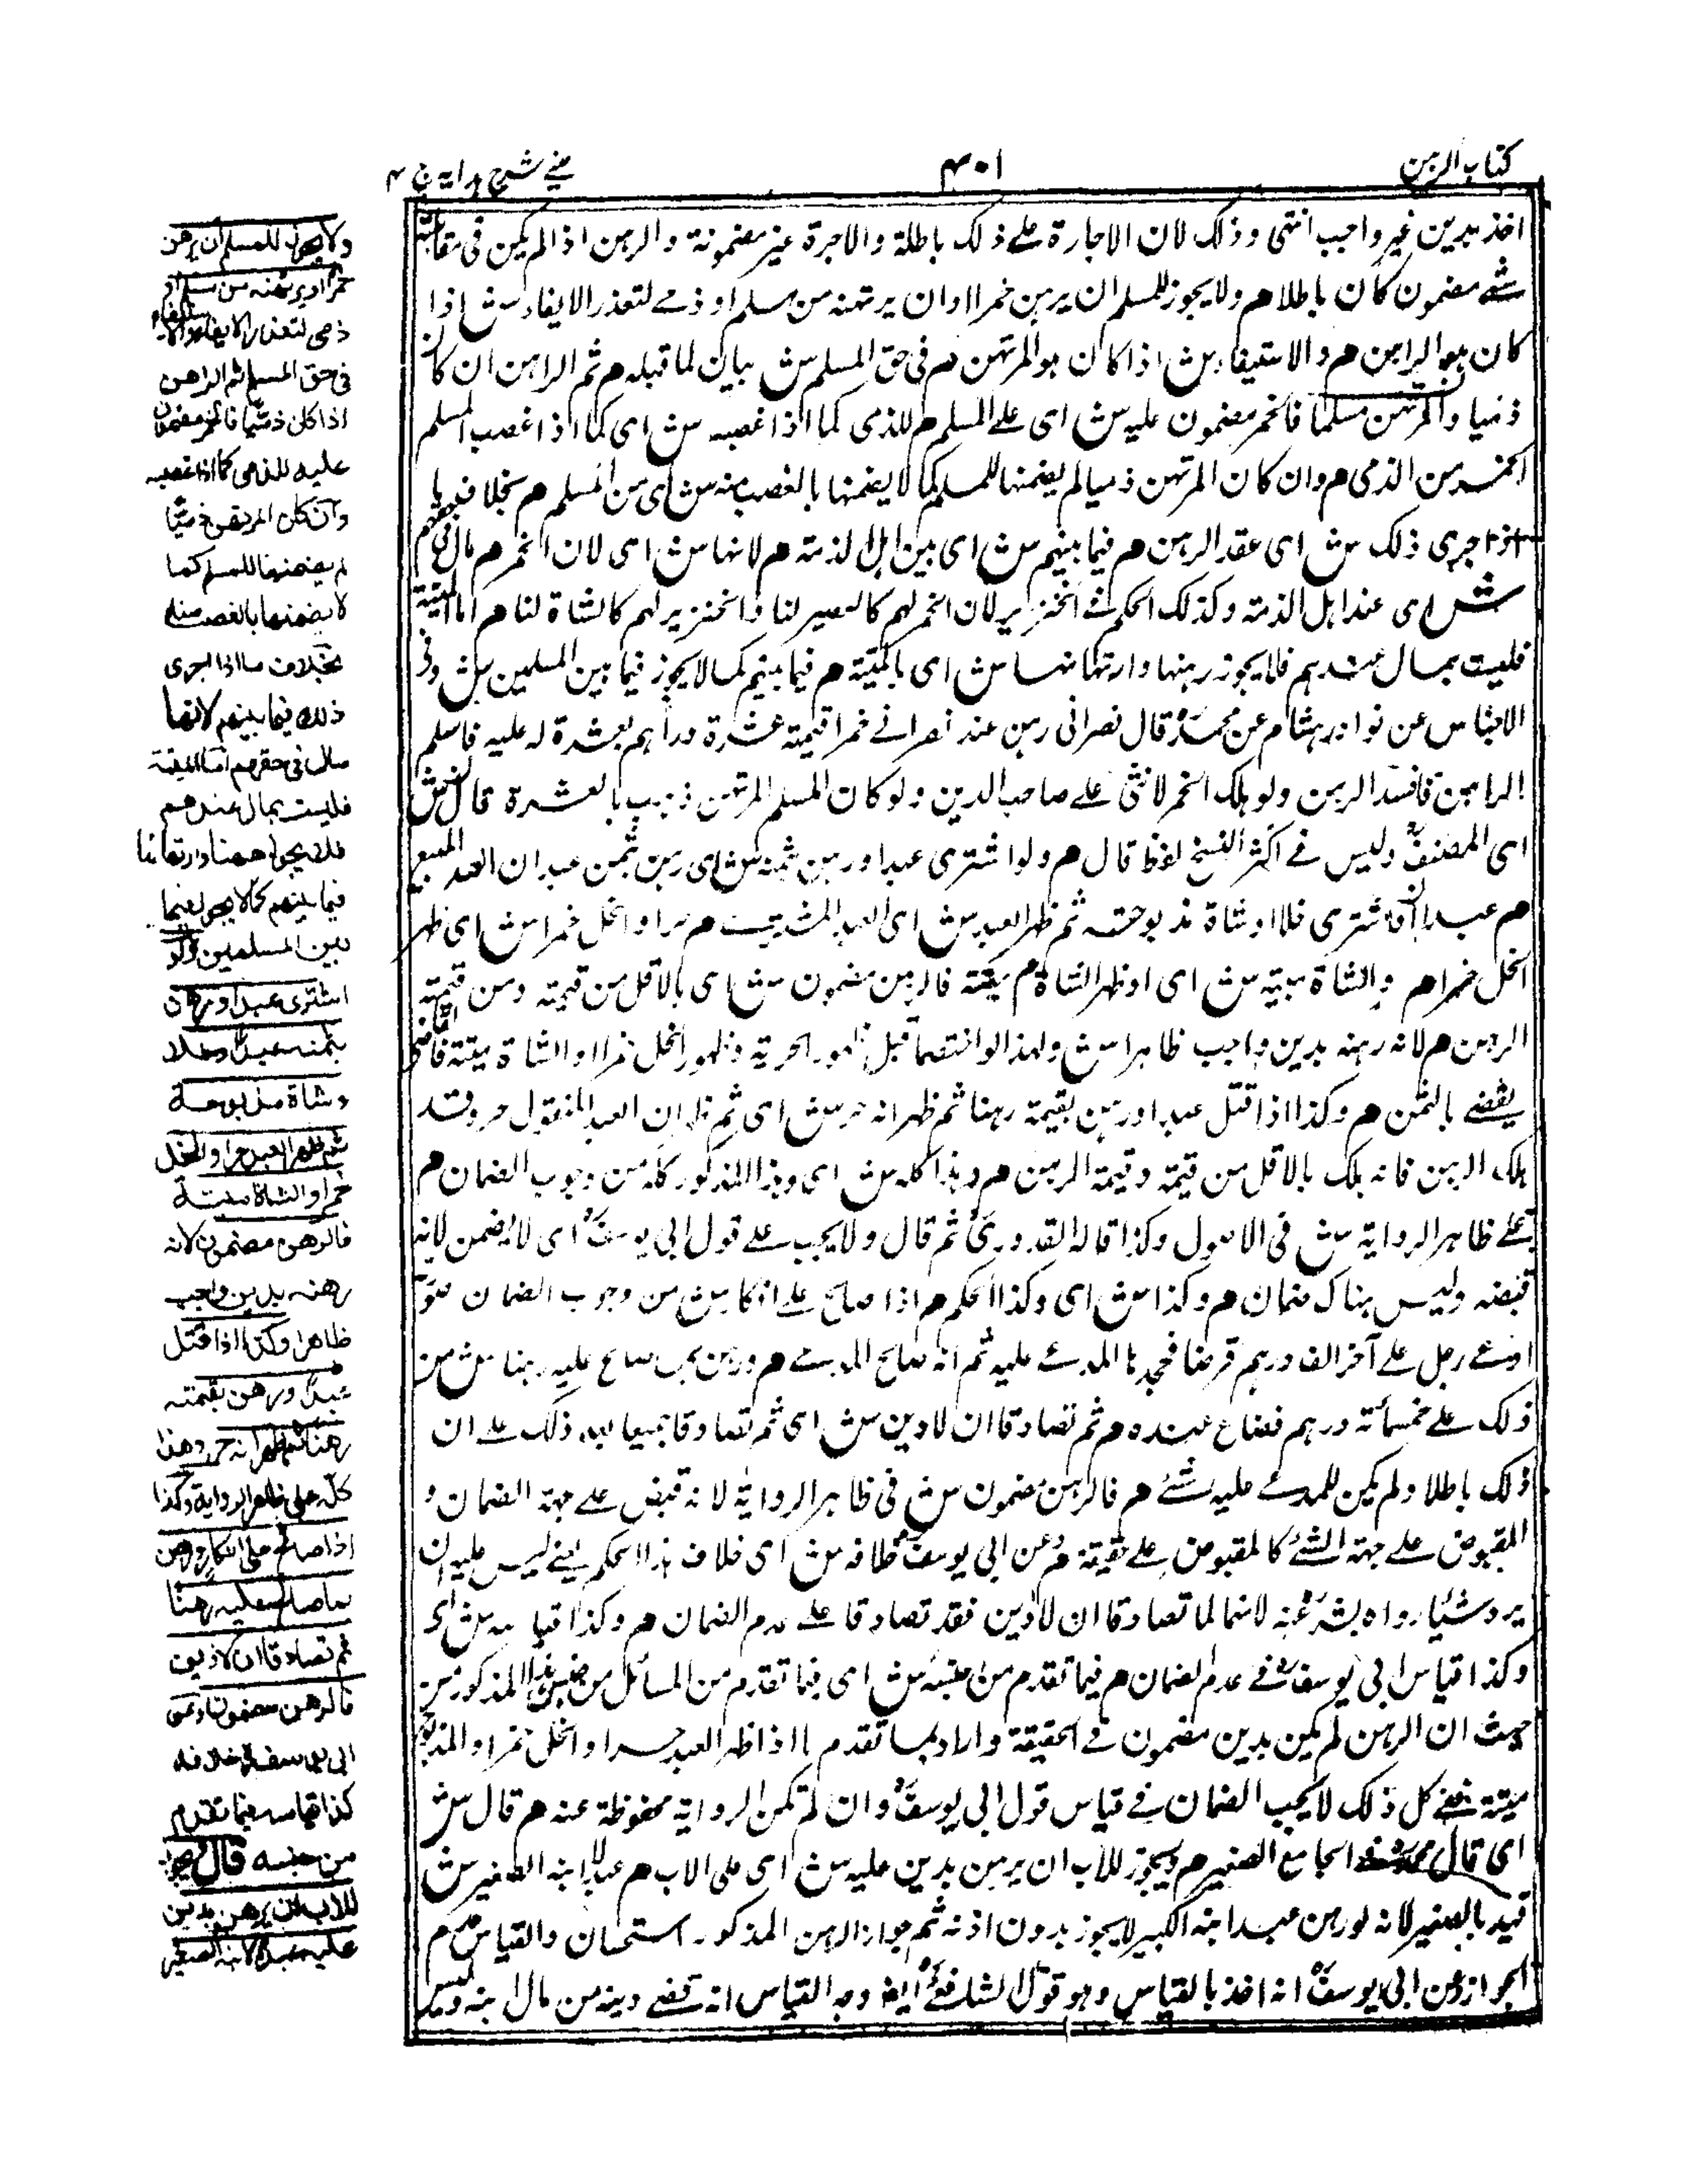 كتاب الرهن
٤٠١
عيني شرح هداية ج ٤
اخذ بدين غير واجب انتهى وذلك لان الاجارة على ذلك باطلة والاجرة غير مضمونة والرهن اذا لم يكن في مقابلته
شئ مضمون كان باطلا هم ولا يجوز للمسلم ان يرهن خمرا او ان يرتهنه من مسلم او ذمي لتعذر الايفاء ش اذا
كان هو الراهن هم والاستيفاء ش اذا كان هو المرتهن هم في حق المسلم ش بيان لما قبله هم ثم الراهن ان كان
ذميا والمرتهن مسلما فالخمر مضمون عليه ش اى على المسلم هم للذمى كما اذا غصبه ش اى كما اذا غصب المسلم
الخمر من الذمى هم وان كان المرتهن ذميا لم يضمنها للمسلم كما لا يضمنها بالغصب منه ش اى من المسلم هم بخلاف ما
اذا جرى ذلك ش اى عقد الرهن هم فيما بينهم ش اى بين اهل الذمة هم لانها ش اى لان الخمر هم مال في حقهم
ش اى عند اهل الذمة وكذلك الحكم في الخنزير لان الخمر لهم كالعصير لنا والخنزير لهم كالشاة لنا هم اما الميتة
فليست بمال عندهم فلا يجوز رهنها وارتهانها ش اى بالميتة هم فيما بينهم كما لا يجوز فيما بين المسلمين ش وفى
الاجناس عن نوادر هشام عن محمد قال نصرانى رهن عند نصرانى خمرا قيمته عشرة دراهم بعشرة له عليه فاسلم
الراهن فافسد الرهن ولو هلك الخمر لا شئ على صاحب الدين ولو كان المسلم المرتهن ذهب بالعشرة قال ش
اى المصنف وليس في اكثر النسخ لفظ قال هم ولو اشترى عبدا ورهن بثمنه ش اى رهن بثمن عبد ان العبد المبيع
هم عبدا او اشترى خلا او شاة مذبوحة ثم ظهر العبد ش اى العبد المشترى هم حرا او الخل خمرا ش اى ظهر
الخل خمرا هم والشاة ميتة ش اى او ظهر الشاة هم ميتة فالرهن مضمون ش اى بالاقل من قيمته ومن قيمة
الرهن هم لانه رهنه بدين واجب ظاهرا ش ولهذا لو اختصما قبل ظهور الحرية وظهور الخل خمرا او الشاة ميتة فالقاضى
يقضي بالثمن هم وكذا اذا قتل عبدا ورهن بقيمته رهنا ثم ظهر انه حر ش اى ثم ظهر ان العبد المقتول حر وقد
هلك الرهن فانه هلك بالاقل من قيمته وقيمة الرهن هم وهذا كله ش اى وهذا المذكور كله من وجوب الضمان هم
على ظاهر الرواية ش في الاصول وكذا قاله القدورى ثم قال ولا يجب على قول ابى يوسف اى لا يضمن لانه
قبضه وليس هناك ضمان هم وكذا ش اى وكذا الحكم هم اذا صالح على انكار ش من وجوب الضمان صورته
ادعى رجل على آخر الف درهم قرضا فجحدها المدعى عليه ثم انه صالح المدعى هم ورهن بما صالح عليه رهنا ش من
ذلك على خمسمائة درهم فضاع عنده هم ثم تصادقا ان لا دين ش اى ثم تصادقا جميعا بعد ذلك على ان
ذلك باطلا ولم يكن للمدعى عليه شئ هم فالرهن مضمون ش في ظاهر الرواية لانه قبض على جهة الضمان و
المقبوض على جهة الشئ كالمقبوض على حقيقته هم وعن ابى يوسف خلافه ش اى خلاف هذا الحكم يعنى ليس عليه ان
يرد شيئا رواه بشر عنه لانهما لما تصادقا ان لا دين فقد تصادقا على عدم الضمان هم وكذا قياسه ش اى
وكذا قياس ابى يوسف في عدم الضمان هم فيما تقدم من جنسه ش اى فيما تقدم من المسائل من جنس هذا المذكور من
حيث ان الرهن لم يكن بدين مضمون في الحقيقة واراد بما تقدم ما اذا ظهر العبد حرا والخل خمرا والمذبوحة
ميتة ففي كل ذلك لا يجب الضمان في قياس قول ابى يوسف وان لم تكن الرواية محفوظة عنه هم قال ش
اى قال محمد في الجامع الصغير هم ويجوز للاب ان يرهن بدين عليه ش اى على الاب هم عبدا لابنه الصغير ش
قيد بالصغير لانه لو رهن عبد ابنه الكبير لا يجوز بدون اذنه ثم جواز الرهن المذكور استحسان والقياس عدم
الجواز وعن ابى يوسف انه اخذ بالقياس وهو قول الشافعى ايضا وجه القياس انه قضى دينه من مال ابنه وليس
ولا يجوز للمسلم ان يرهن
خمرا او يرتهنه من مسلم او
ذمى لتعذر الايفاء والاستيفاء
فى حق المسلم ثم الراهن
اذا كان ذميا فالخمر مضمون
عليه للذمى كما اذا غصبه
وان كان المرتهن ذميا
لم يضمنها للمسلم كما
لا يضمنها بالغصب منه
بخلاف ما اذا جرى
ذلك فيما بينهم لانها
مال فى حقهم اما الميتة
فليست بمال عندهم
فلا يجوز رهنها وارتهانها
فيما بينهم كما لا يجوز فيما
بين المسلمين ولو
اشترى عبدا ورهن
بثمنه عبدا او خلا
او شاة مذبوحة
ثم ظهر العبد حرا والخل
خمرا والشاة ميتة
فالرهن مضمون لانه
رهنه بدين واجب
ظاهرا وكذا اذا قتل
عبدا ورهن بقيمته
رهنا ثم ظهر انه حر وهذا
كله على ظاهر الرواية وكذا
اذا صالح على انكار ورهن
بما صالح عليه رهنا
ثم تصادقا ان لا دين
فالرهن مضمون وعن
ابى يوسف خلافه
وكذا قياسه فيما تقدم
من جنسه قال ويجوز
للاب ان يرهن بدين
عليه عبدا لابنه الصغير